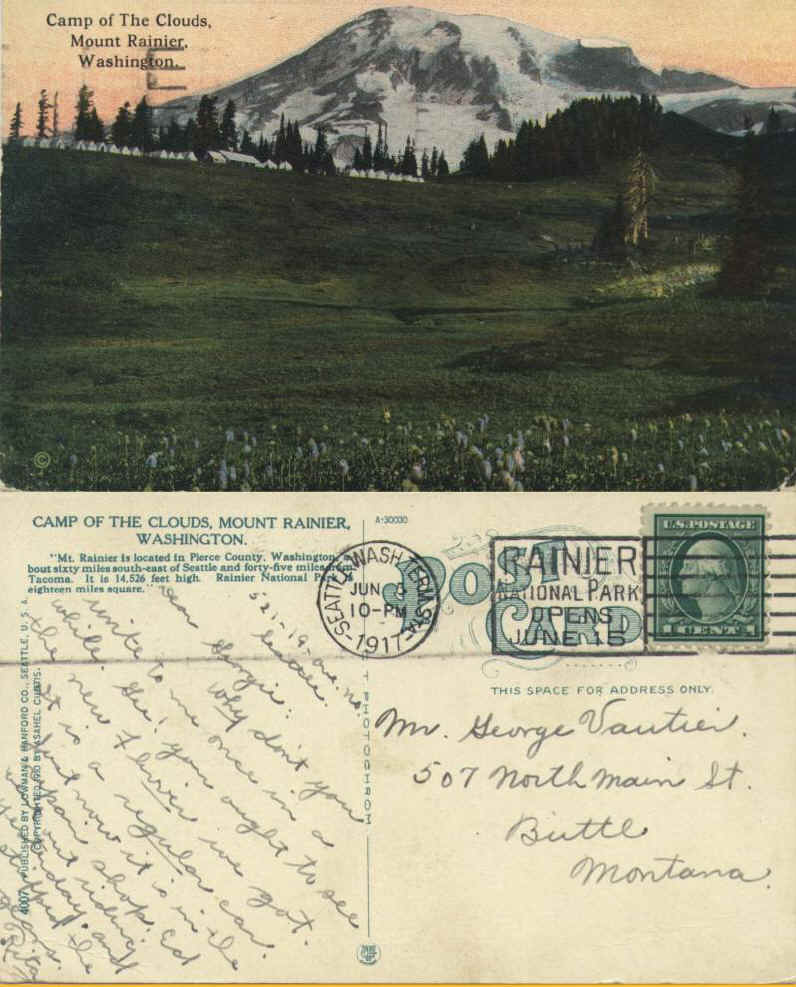 Camp of The Clouds,
Mount Rainier,
Washington.
©
CAMP OF THE CLOUDS, MOUNT RAINIER,
WASHINGTON.
"Mt. Rainier is located in Pierce County, Washington, a-
bout sixty miles south-east of Seattle and forty-five miles from
Tacoma. It is 14,526 feet high. Rainier National Park is
eighteen miles square."
A-30030
POST
CARD
SEATTLE, WASH. TERM. STA.
JUN
10-PM
1917
RAINIER
NATIONAL PARK
OPENS
JUNE 15
U.S. POSTAGE
1 CENT 1
THIS SPACE FOR ADDRESS ONLY.
Mr. George Vautier.
507 North Main St.
Butte
Montana.
521-19-ave. no.
Seattle.
Dear Georgie:
Why don't you
write to me once in a
while. Gee! you ought to see
the new flivver we got.
It is a regular car.
Just now it is in the
repair shop. Ed
went out riding
yesterday and
stripped the
gears.
4007 PUBLISHED BY LOWMAN & HANFORD CO., SEATTLE, U. S. A.
COPYRIGHTED BY ASAHEL CURTIS.
PHOTOCHROM